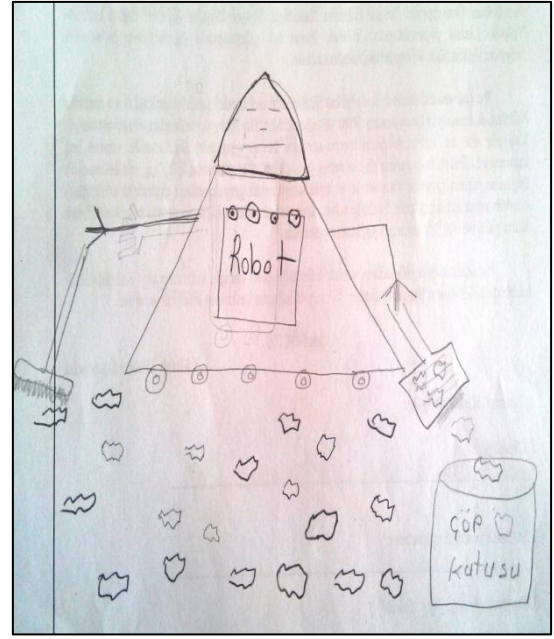 Robot
çöp
kutusu